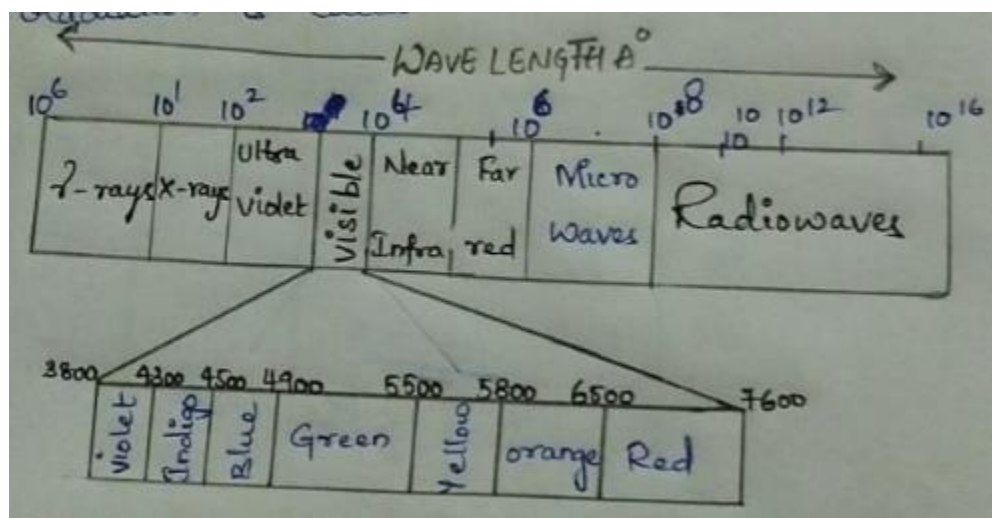 WAVE LENGTH A°
10⁶ 10¹ 10² 10⁴ 10⁶ 10⁸ 10 10 10¹² 10¹⁶
γ-rays X-rays Ultra violet visible Near Infra Far red Micro Waves Radiowaves
3800 4300 4500 4900 5500 5800 6500 7600
violet Indigo Blue Green Yellow orange Red